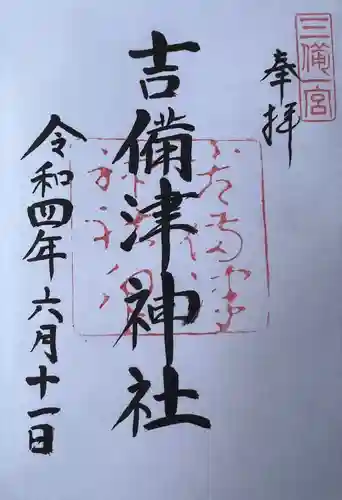 三備一宮
奉拝
吉備津神社
令和四年六月十一日